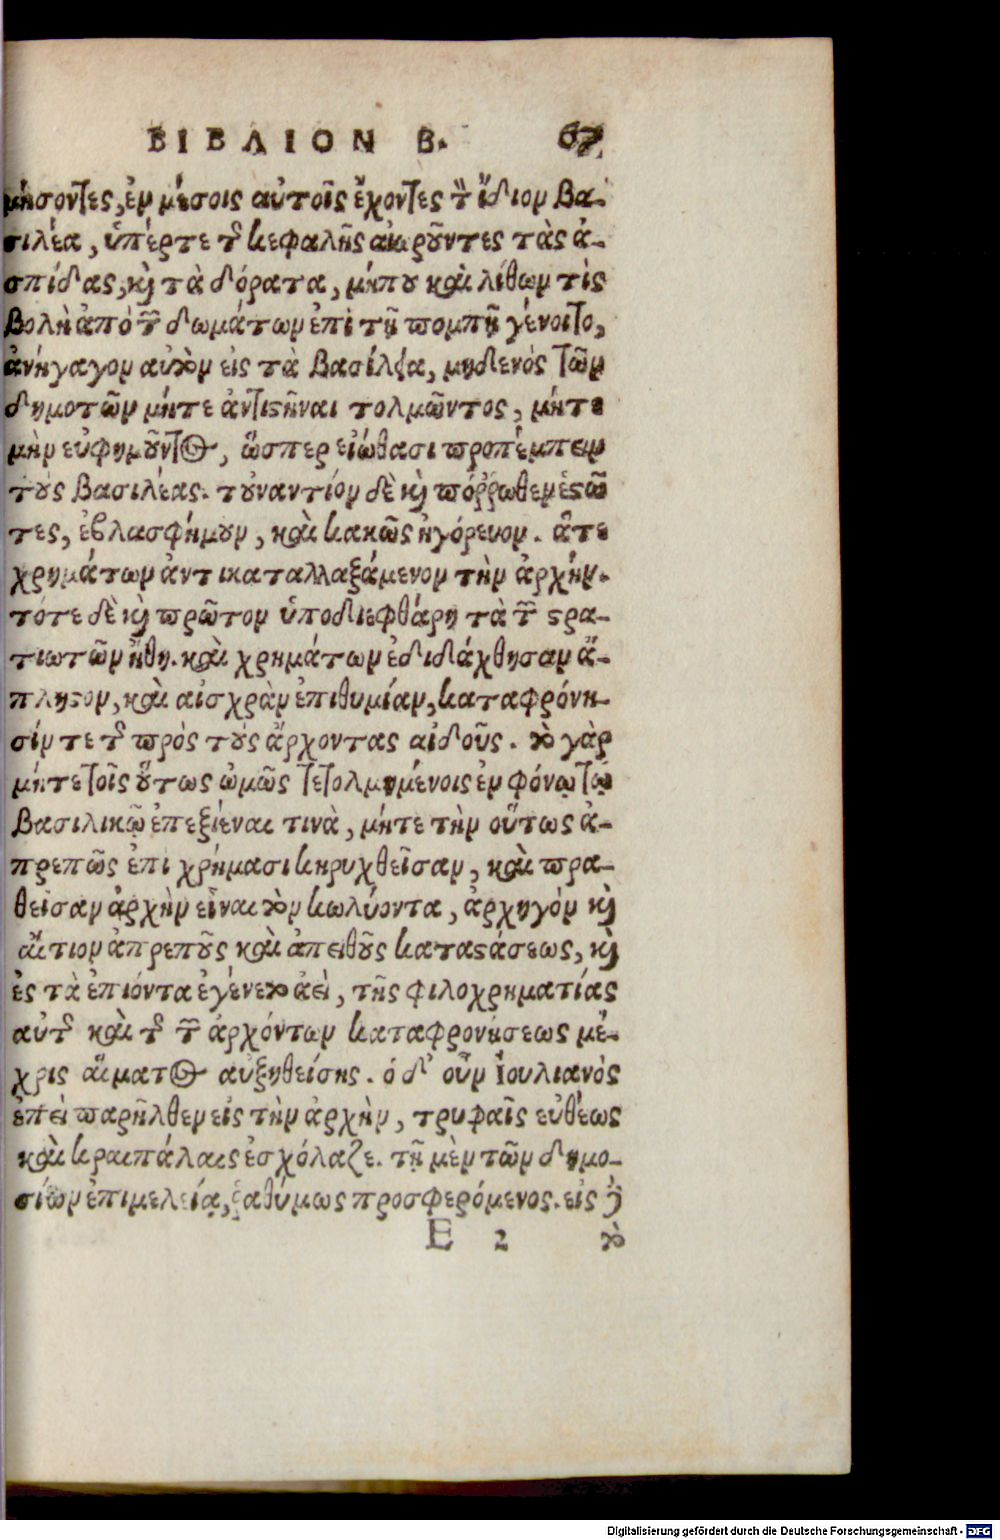 ΒΙΒΛΙΟΝ Β. 67
μήσοντες, ἐν μέσοις αὐτοῖς ἔχοντες τὸν ἴδιον βα-
σιλέα, ὑπέρτε τῆς κεφαλῆς αἰωροῦντες τὰς ἀ-
σπίδας, καὶ τὰ δόρατα, μήπου καὶ λίθων τὶς
βολὴ ἀπὸ τῶν δωμάτων ἐπὶ τῇ πομπῇ γένοιτο,
ἀνήγαγον αὐτὸν εἰς τὰ βασίλεια, μηδενὸς τῶν
δημοτῶν μήτε ἀντιστῆναι τολμῶντος, μήτε
μὴν εὐφημοῦντος, ὥσπερ εἰώθασι προπέμπειν
τοὺς βασιλέας. τοὐναντίον δὲ καὶ πόῤῥωθεν ἑστῶ
τες, ἐβλασφήμουν, καὶ κακῶς ἠγόρευον. ἅτε
χρημάτων ἀντικαταλλαξάμενον τὴν ἀρχήν.
τότε δὲ καὶ πρῶτον ὑποδιεφθάρη τὰ τῶν στρα-
τιωτῶν ἤθη. καὶ χρημάτων ἐδιδάχθησαν ἄ-
πληστον, καὶ αἰσχρὰν ἐπιθυμίαν, καταφρόνη-
σίν τε τῆς πρὸς τοὺς ἄρχοντας αἰδοῦς. τὸ γὰρ
μήτε τοῖς οὕτως ὠμῶς τετολμημένοις ἐν φόνῳ τῷ
βασιλικῷ ἐπεξιέναι τινὰ, μήτε τὴν οὕτως ἀ-
πρεπῶς ἐπι χρήμασι κηρυχθεῖσαν, καὶ πρα-
θεῖσαν ἀρχὴν εἶναι τὸν κωλύοντα, ἀρχηγὸν καὶ
αἴτιον ἀπρεποῦς καὶ ἀπειθοῦς καταστάσεως, καὶ
ἐς τὰ ἐπιόντα ἐγένετο ἀεὶ, τῆς φιλοχρηματίας
αὐτῆς καὶ τῆς τῶν ἀρχόντων καταφρονήσεως μέ-
χρις αἵματος αὐξηθείσης. ὁ δ' οὖν Ἰουλιανὸς
ἐπεὶ παρῆλθεν εἰς τὴν ἀρχὴν, τρυφαῖς εὐθέως
καὶ κραιπάλαις ἐσχόλαζε. τῇ μὲν τῶν δημο-
σίων ἐπιμελείᾳ, ῥᾳθύμως προσφερόμενος. εἰς
Ε 2 τὸ
Digitalisierung gefördert durch die Deutsche Forschungsgemeinschaft - DFG